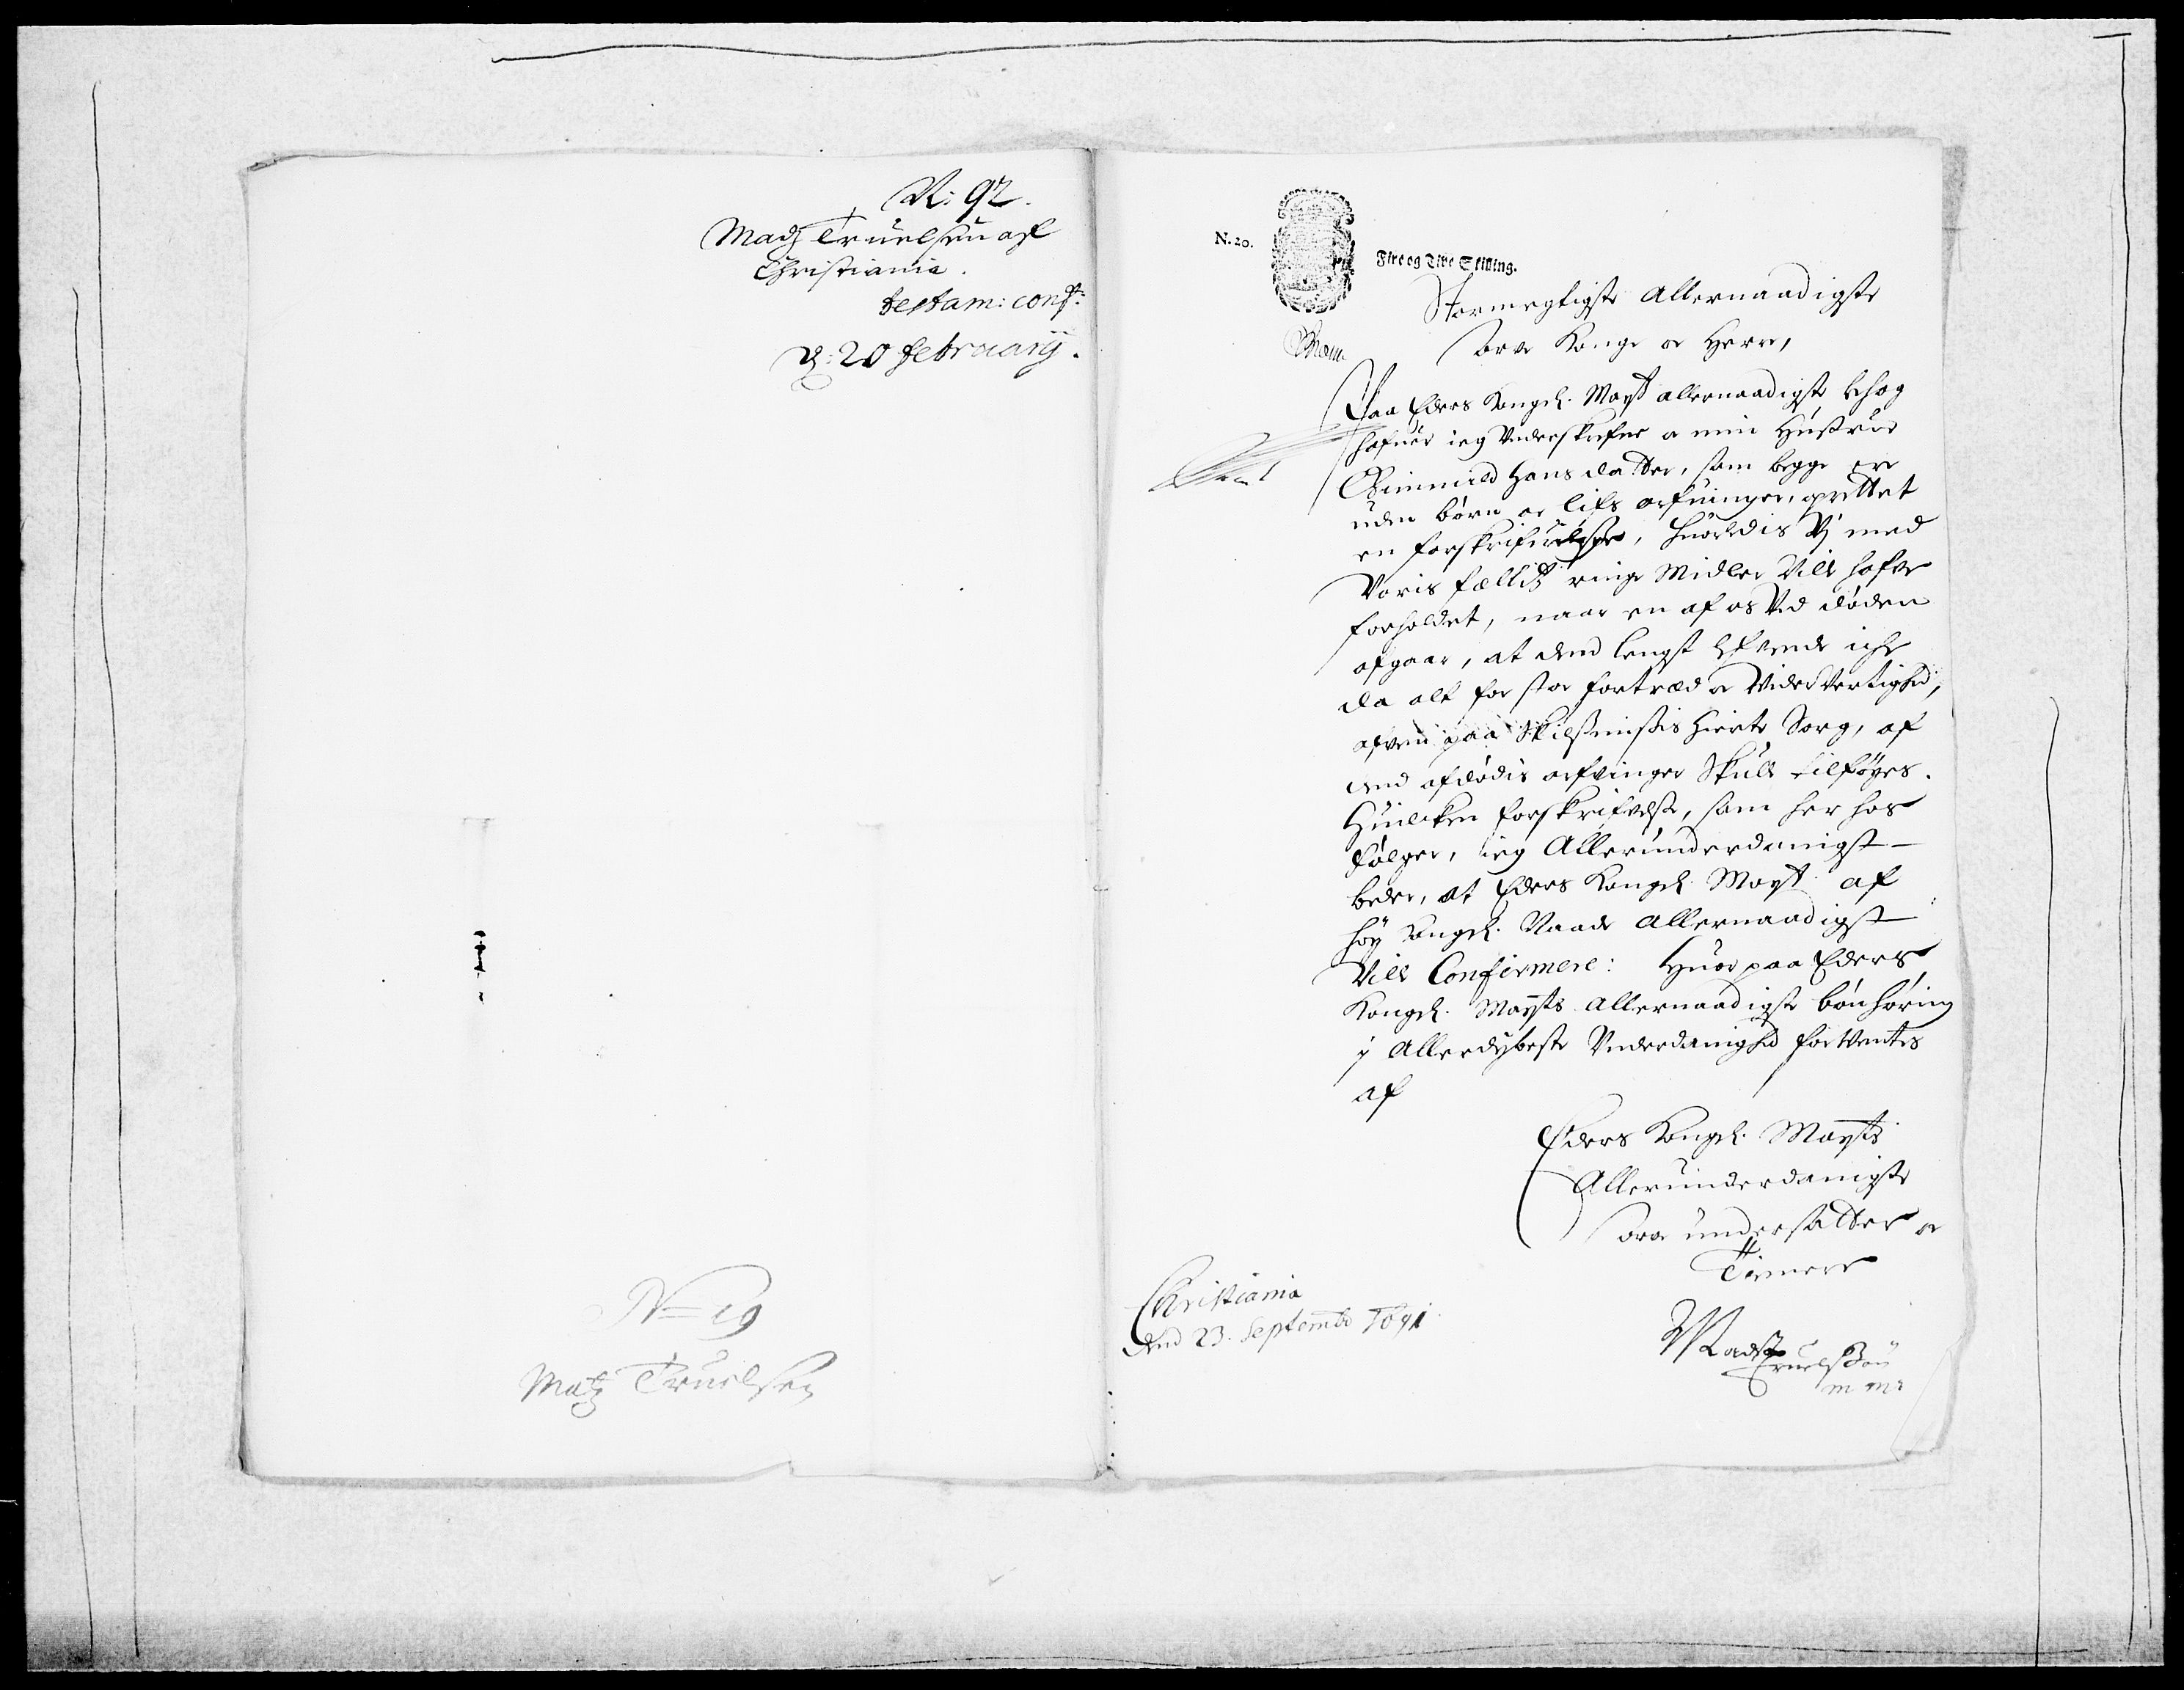 N: 92.
Madz Truelsen af
Christiania.
testam: conf:
d: 20 februarij.
No 19
Matz Truelsen
N. 20.
Fire og Tive Skilling.
Stormegtigste Allernaadigste
Arve Konge oc Herre,
Paa Eders Kongel. Mayt allernaadigste behag
hafuer ieg Underskrefne oc min Hustrue
Gunnild Hans datter, som begge ere
uden børn oc lifs arfuinger, oprettet
en forskrifuelse, huorledis Vj med
Voris fællitz ringe Midler Ville hafve
forholdet, naar en af os Ved døden
afgaar, at dend lengst lefvende iche
da alt for stor fortræd oc Widervertighed,
ofven paa Skilsmissis Hierte Sorg, af
dend afdødis arfvinger Skulle tilføyes.
Huilcken forskrifvelse, som her hos
følger, ieg Allerunderdanigst
beder, at Eders Kongel Mayt af
høy Kongel. Naade Allernaadigst
Ville Confirmere: Huor paa Eders
Kongel. Maytts Allernaadigste bønhøring
j Allerdybeste Underdanighed forventes
af
Eders Kongel. Maytts
Allerunderdanigste
Arve undersatter oc
Tienere
Christiania
dend 23. Septembr 1691
Madst
Truelssøn
m mr